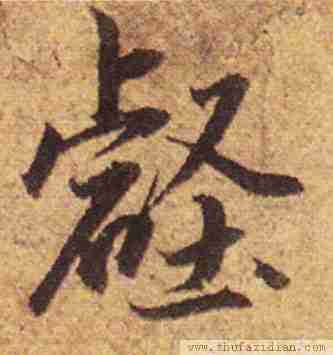 壑
www.shufazidian.com